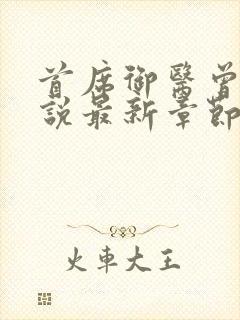 首席御醫曾
說最新章節
火車大王